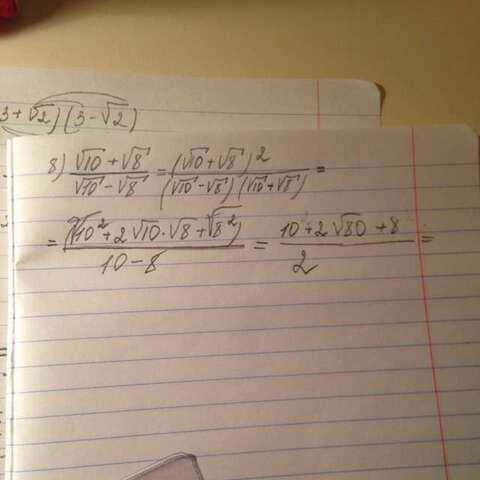 3+√2)(3-√2)
8) (√10+√8)/(√10-√8) = (√10+√8)²/((√10-√8)(√10+√8)) =
= (√10²+2√10·√8+√8²)/(10-8) = (10+2√80+8)/2 =